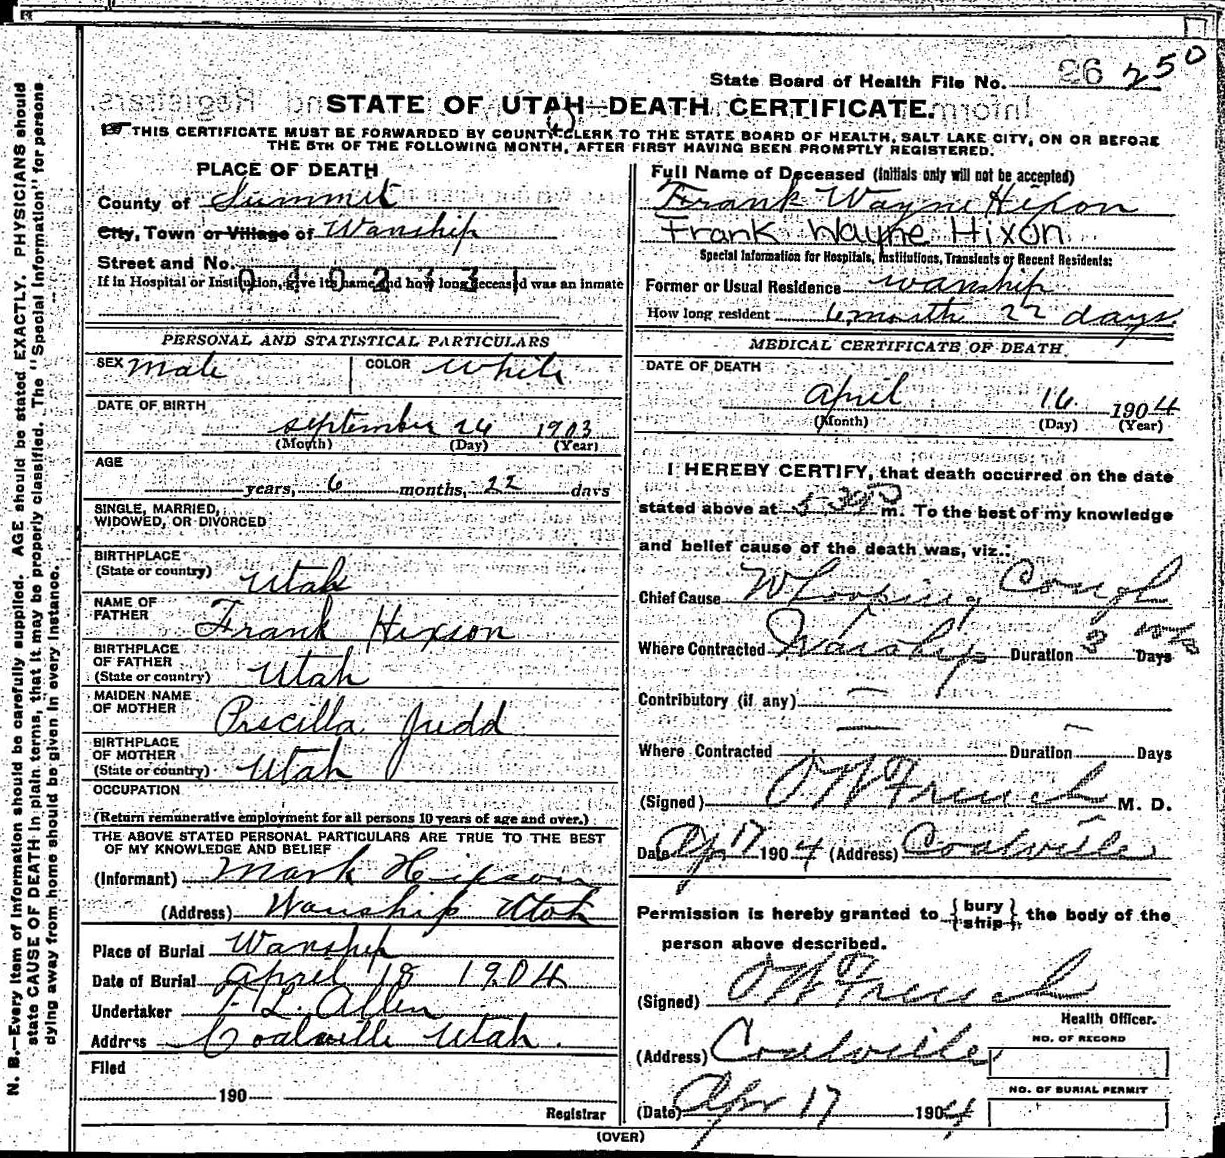 State Board of Health File No. 26 250
STATE OF UTAH—DEATH CERTIFICATE.
THIS CERTIFICATE MUST BE FORWARDED BY COUNTY CLERK TO THE STATE BOARD OF HEALTH, SALT LAKE CITY, ON OR BEFORE
THE 5TH OF THE FOLLOWING MONTH, AFTER FIRST HAVING BEEN PROMPTLY REGISTERED.
PLACE OF DEATH
County of Summit
City, Town or Village of Wanship
Street and No.
0402331
If in Hospital or Institution, give its name and how long deceased was an inmate
PERSONAL AND STATISTICAL PARTICULARS
SEX Male COLOR White
DATE OF BIRTH
September 24 1903
(Month) (Day) (Year)
AGE
years, 6 months, 22 days
SINGLE, MARRIED,
WIDOWED, OR DIVORCED
BIRTHPLACE
(State or country) Utah
NAME OF
FATHER Frank Hixson
BIRTHPLACE
OF FATHER
(State or country) Utah
MAIDEN NAME
OF MOTHER Priscilla Judd
BIRTHPLACE
OF MOTHER
(State or country) Utah
OCCUPATION
(Return remunerative employment for all persons 10 years of age and over.)
THE ABOVE STATED PERSONAL PARTICULARS ARE TRUE TO THE BEST
OF MY KNOWLEDGE AND BELIEF
(Informant) Mark Hixson
(Address) Wanship Utah
Place of Burial Wanship
Date of Burial April 18 1904
Undertaker T L. Allen
Address Coalville Utah.
Filed
190
Registrar
Full Name of Deceased (Initials only will not be accepted)
Frank Wayne Hixon
Frank Wayne Hixon
Special Information for Hospitals, Institutions, Transients or Recent Residents:
Former or Usual Residence wanship
How long resident 6 month 22 days
MEDICAL CERTIFICATE OF DEATH
DATE OF DEATH
April 16 1904
(Month) (Day) (Year)
I HEREBY CERTIFY, that death occurred on the date
stated above at 5-30 P m. To the best of my knowledge
and belief cause of the death was, viz.:
Chief Cause Whooping Cough
Where Contracted Wanship Duration 3 wks Days
Contributory (if any) —
Where Contracted — Duration — Days
(Signed) O W French M. D.
Date Ap 17 1904 (Address) Coalville
Permission is hereby granted to {bury ship} the body of the
person above described.
(Signed) O W French
Health Officer.
(Address) Coalville
NO. OF RECORD
NO. OF BURIAL PERMIT
(Date) Apr 17 1904
(OVER)
N. B.—Every item of information should be carefully supplied. AGE should be stated EXACTLY. PHYSICIANS should
state CAUSE OF DEATH in plain terms, that it may be properly classified. The "Special Information" for persons
dying away from home should be given in every instance.